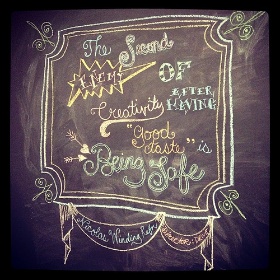 The Second
ENEMY OF
AFTER
Creativity HAVING
"Good
taste" is
Being Safe
Nicolas Winding Refn